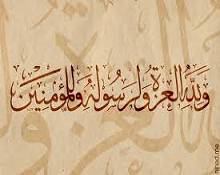 وَلِلَّهِ الْعِزَّةُ وَلِرَسُولِهِ وَلِلْمُؤْمِنِينَ